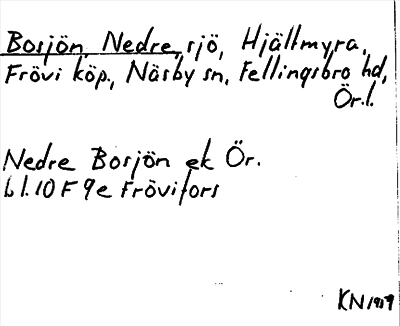 Bosjön, Nedre, sjö, Hjältmyra,
Frövi köp., Näsby sn, Fellingsbro hd,
Ör.l.
Nedre Bosjön ek Ör.
bl. 10 F 9e Frövifors
KN